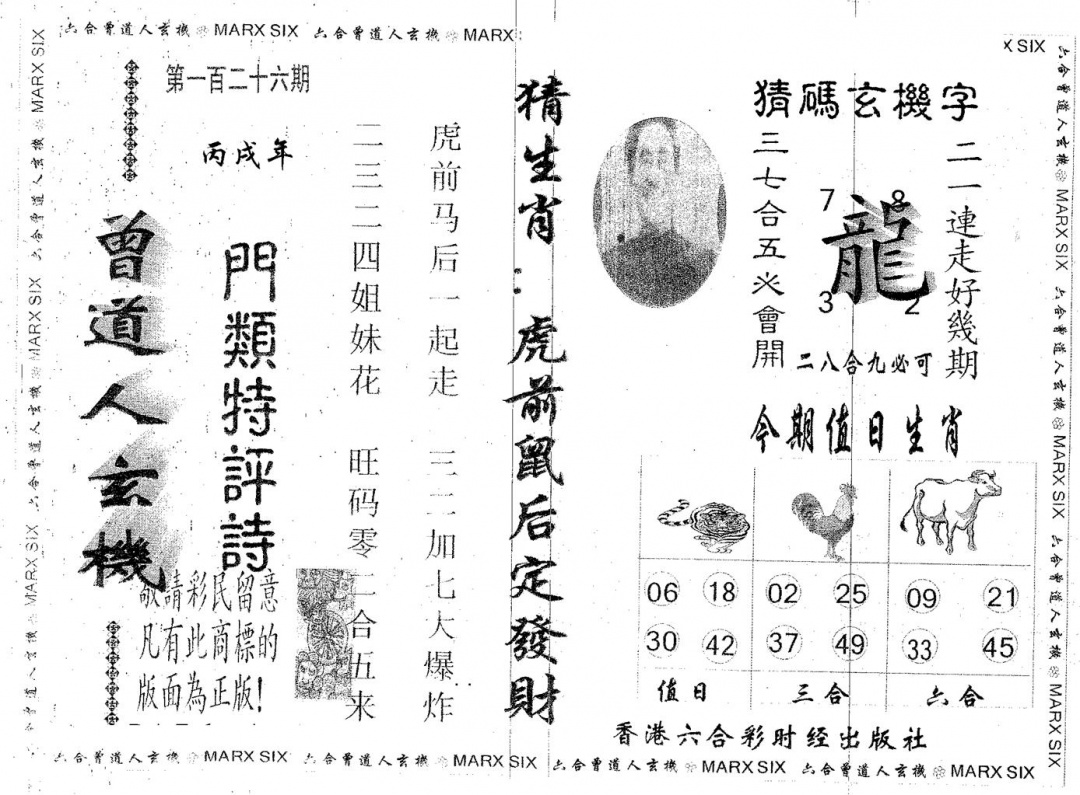 六合曾道人玄機 MARX SIX 六合曾道人玄機 MARX S
X SIX
六合曾道人玄機 MARX SIX 六合曾道人玄機 MARX SIX 六合曾道人玄機 MARX SIX
第一百二十六期
丙戌年
曾道人玄機
門類特評詩
敬請彩民留意
凡有此商標的
版面為正版!
虎前马后一起走 三二加七大爆炸
二三二四姐妹花 旺码零二合五来
猜生肖：虎前鼠后定發財
猜碼玄機字
二一連走好幾期
7 8
龍
3 2
三七合五必會開
二八合九必可
今期值日生肖
06 18 02 25 09 21
30 42 37 49 33 45
值日 三合 六合
香港六合彩时经出版社
六合曾道人玄機 MARX SIX 六合曾道人玄機 MARX SIX 六合曾道人玄機 MARX SIX
六合曾道人玄機 MARX SIX 六合曾道人玄機 MARX SIX 六合曾道人玄機 MARX SIX 六合曾道人玄機 MARX SIX